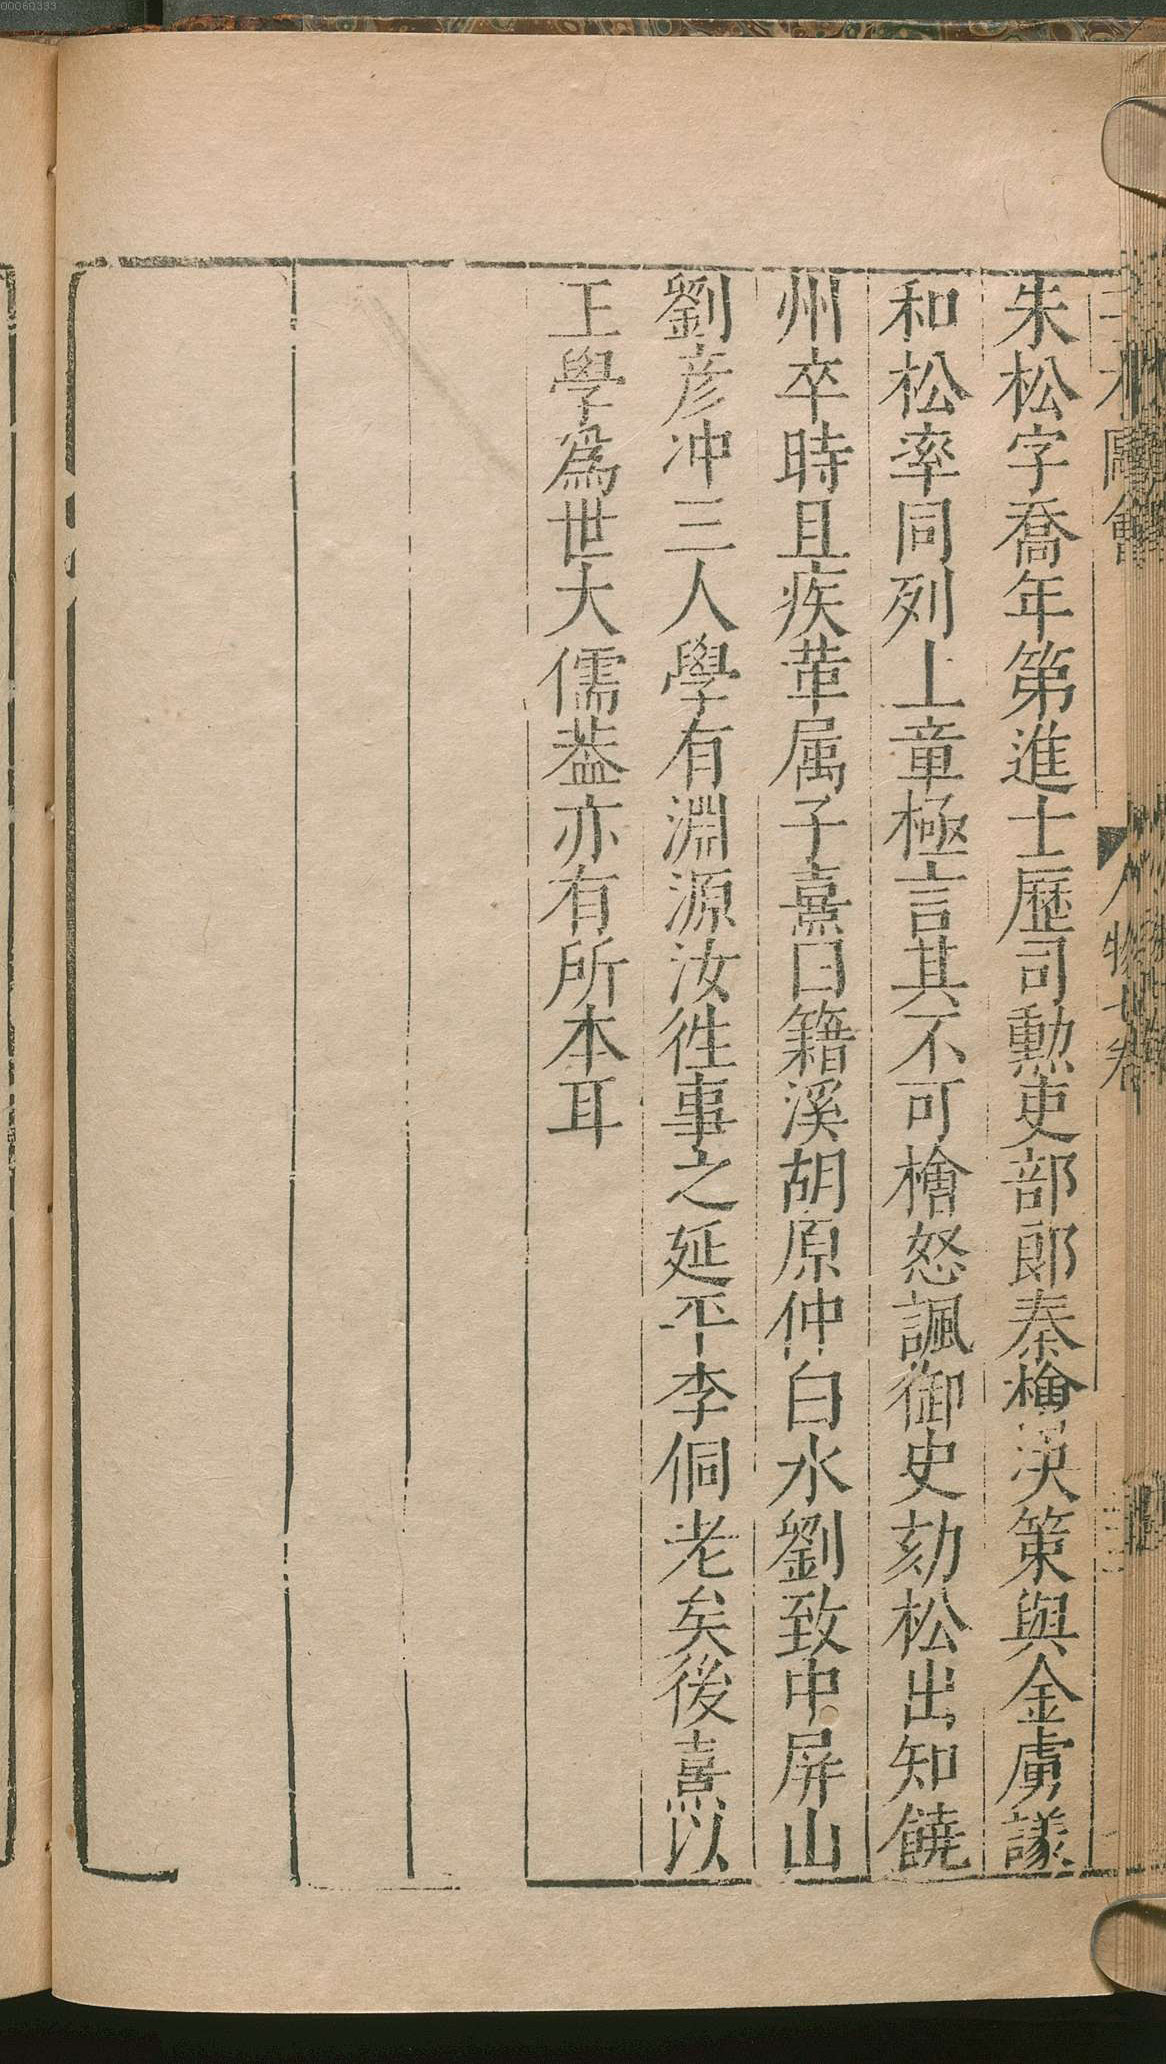 00060333
三才圖會
人物七卷
朱松字喬年第進士歷司勲吏部郎秦檜決策與金虜議
和松率同列上章極言其不可檜怒諷御史劾松出知饒
州卒時且疾革属子熹曰籍溪胡原仲白水劉致中屏山
劉彦冲三人學有淵源汝徃事之延平李侗老矣後熹以
正學爲世大儒葢亦有所本耳